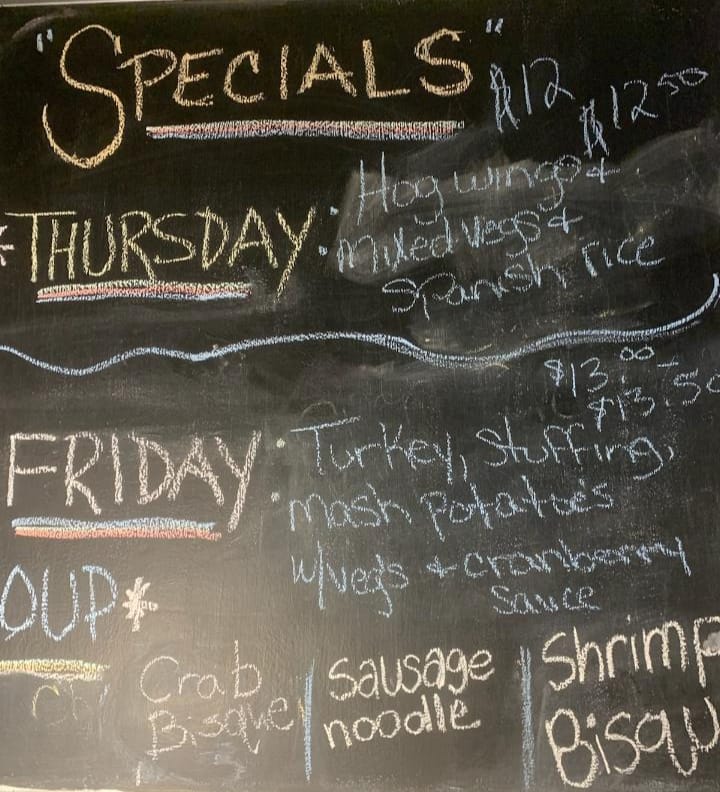 "SPECIALS"
$12
$12 50
Hog wings &
*THURSDAY
• Mixed vegs &
Spanish rice
$13.00 -
$13.50
FRIDAY
• Turkey, Stuffing,
• mash potatoe's
w/veg's & cranberry
Sauce
OUP*
Crab
Bisque
Sausage
noodle
Shrimp
Bisqu